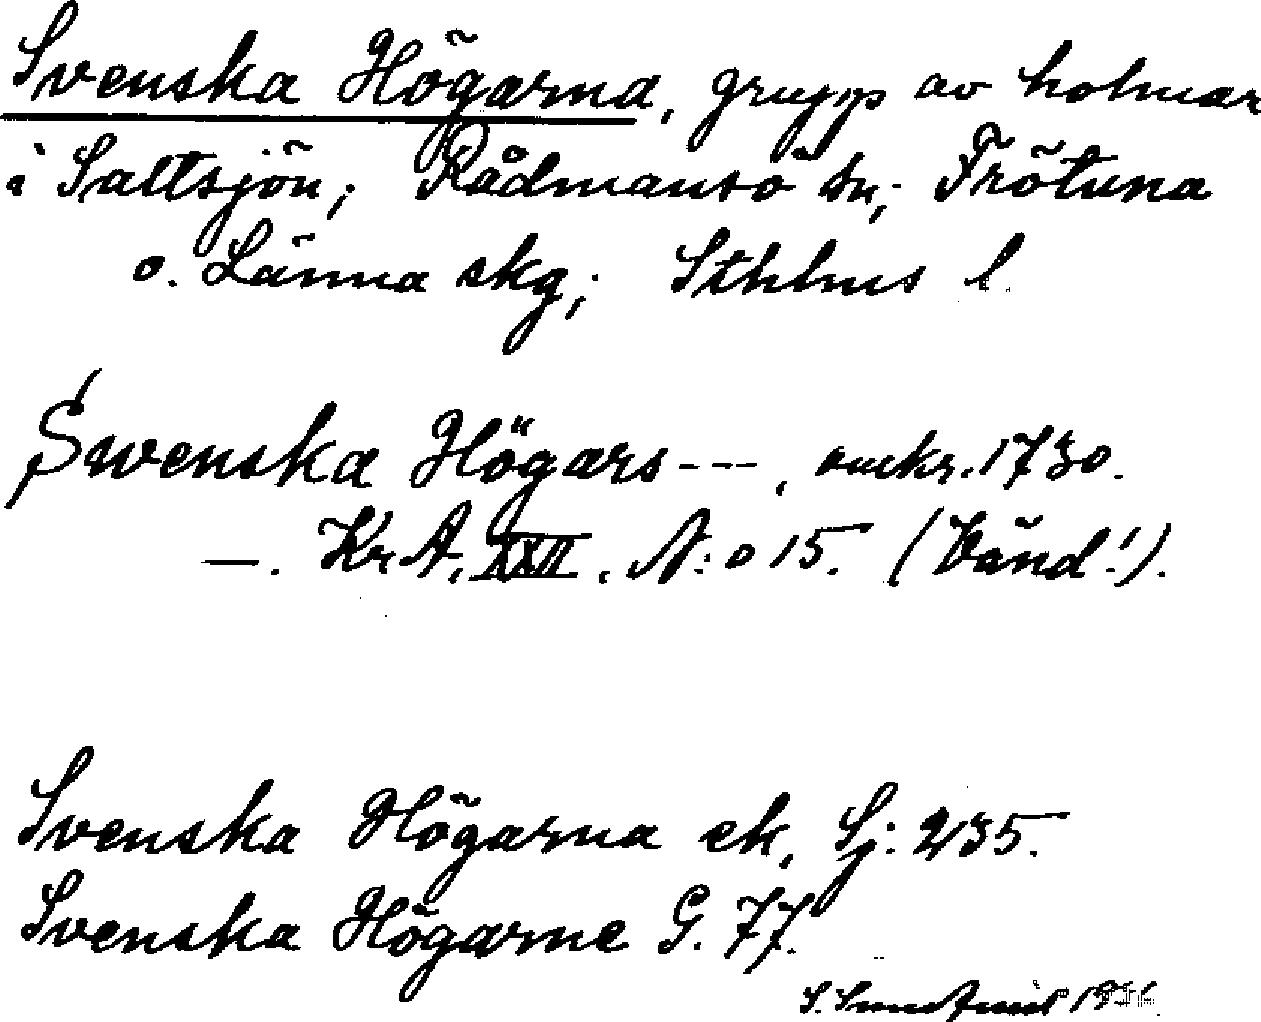 Svenska Högarna, grupp av holmar
i Saltsjön; Rådmansö sn; Frötuna
o. Länna skg; Sthlms l.
Swenska Högars ---, omkr. 1730.
—. KrA, XXII, N:o 15. (Vänd!).
Svenska Högarna ek, Sj: 235.
Svenska Högarne G. 77.
S.